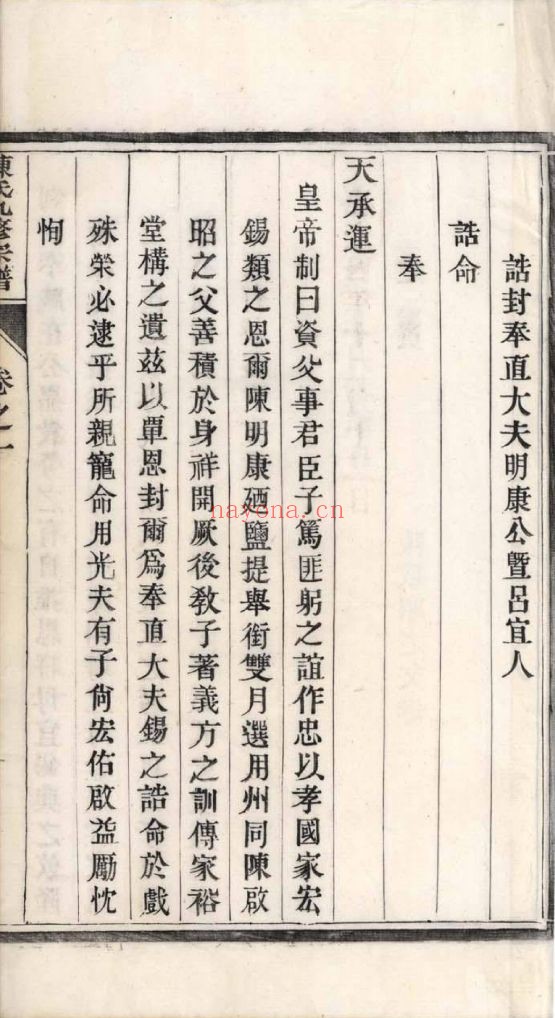 誥封奉直大夫明康公暨呂宜人
誥命
奉
天承運
皇帝制曰資父事君臣子篤匪躬之誼作忠以孝國家宏
錫類之恩爾陳明康廼鹽提舉銜雙月選用州同陳啟
昭之父善積於身祥開厥後敎子著義方之訓傳家裕
堂構之遺茲以覃恩封爾爲奉直大夫錫之誥命於戲
殊榮必逮乎所親寵命用光夫有子尙宏佑啟益勵忱
恂
陳氏九修宗譜
卷之一
nayona.cn